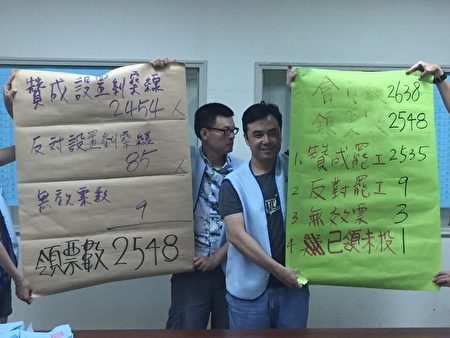 贊成設置糾察線
2454人
反対設置糾察線
85人
無效票数
9
領票數2548
會員數2638
領票數2548
1. 贊成罷工2535
2. 反對罷工9
3 無效票3
4 已領未投1